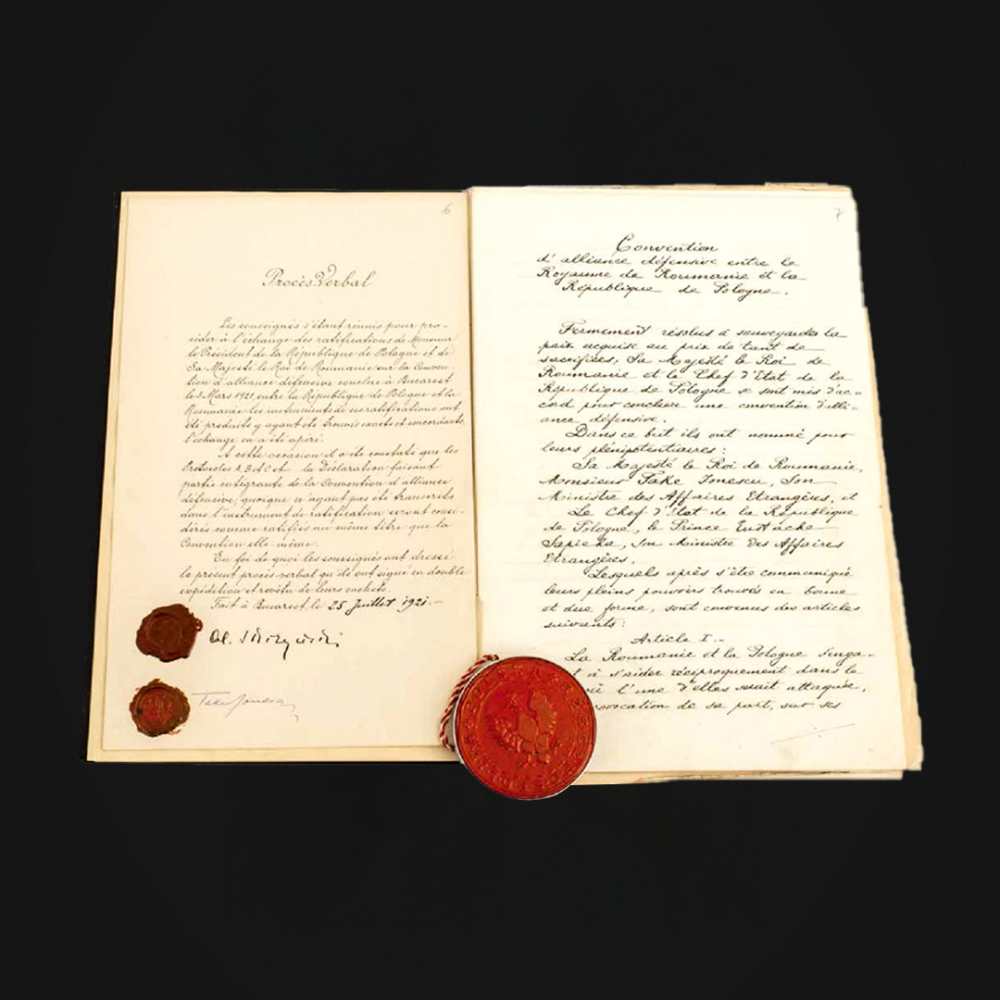 6
Procès Verbal
Les soussignés s'étant réunis pour pro-
céder à l'échange des ratifications de Monsieur
le Président de la République de Pologne et de
Sa Majesté le Roi de Roumanie sur la Conven-
tion d'alliance défensive conclue à Bucarest
le 3 Mars 1921 entre la République de Pologne et la
Roumanie les instruments de ces ratifications ont
été produits y ayant été trouvés exacts et concordants,
l'échange en a été opéré.
A cette occasion il a été constaté que les
Protocoles A, B et C et la Déclaration faisant
partie intégrante de la Convention d'alliance
défensive, quoique n'ayant pas été transcrits
dans l'instrument de ratification seront consi-
dérés comme ratifiés au même titre que la
Convention elle-même.
En foi de quoi les soussignés ont dressé
le présent procès-verbal qu'ils ont signé en double
expédition et revêtu de leurs cachets.
Fait à Bucarest, le 25 Juillet 1921.-
Al. Skrzyński
Take Jonescu
7
Convention
d'alliance défensive entre le
Royaume de Roumanie et la
République de Pologne.
Fermement résolus à sauvegarder la
paix acquise au prix de tant de
sacrifices, Sa Majesté le Roi de
Roumanie et le Chef d'Etat de la
République de Pologne se sont mis d'ac-
cord pour conclure une convention d'alli-
ance défensive.
Dans ce but ils ont nommé pour
leurs plénipotentiaires:
Sa Majesté le Roi de Roumanie,
Monsieur Take Ionescu, Son
Ministre des Affaires Etrangères, et
Le Chef d'Etat de la République
de Pologne, le Prince Eustache
Sapieha, Son Ministre des Affaires
Etrangères.
Lesquels après s'être communiqué
leurs pleins pouvoirs trouvés en bonne
et due forme, sont convenus des articles
suivants:
Article I.-
La Roumanie et la Pologne s'enga-
t à s'aider réciproquement dans le
où l'une d'elles serait attaquée,
rovocation de sa part, sur ses